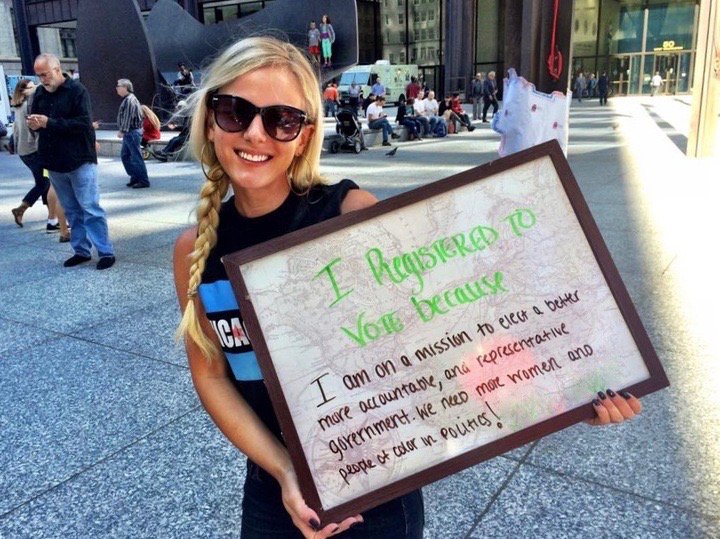 I Registered to
Vote because
I am on a mission to elect a better
more accountable, and representative
government. We need more women and
people of color in politics!
ICA